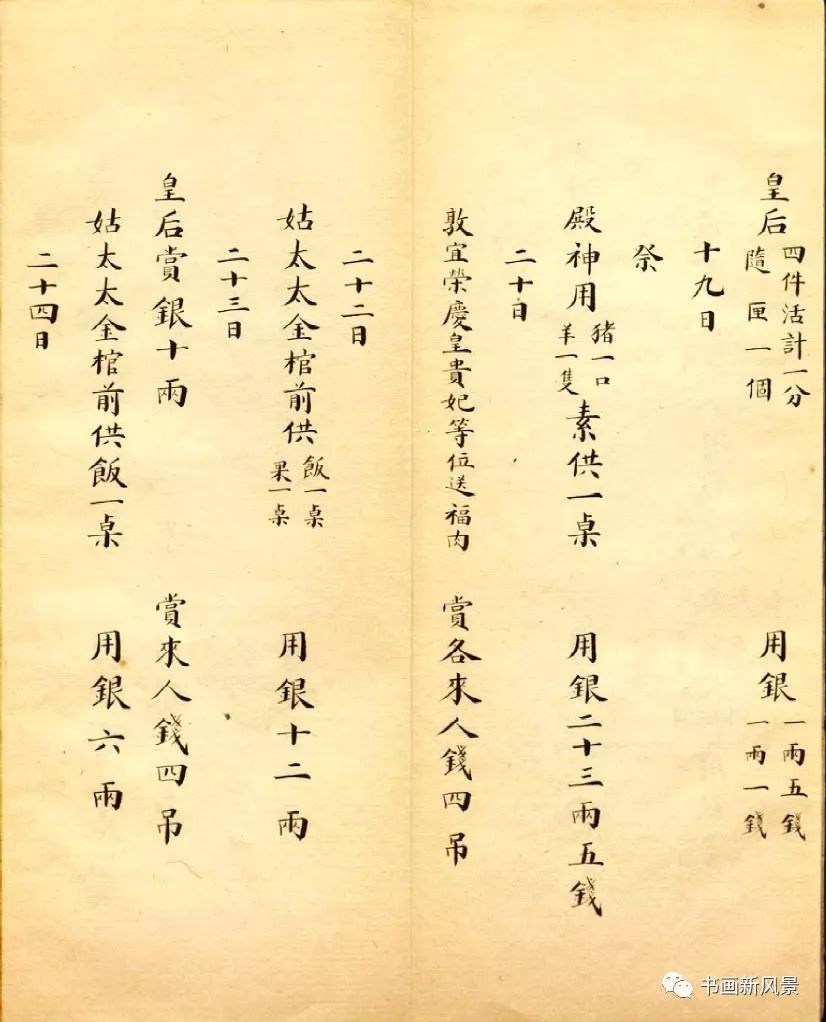 皇后四件活計一分隨匣一個 用銀一兩五錢一兩一錢
十九日
祭
殿神用豬一口羊一隻素供一桌 用銀二十三兩五錢
二十日
敦宜榮慶皇貴妃等位送福肉 賞各來人錢四吊
二十二日
姑太太金棺前供飯一桌果一桌 用銀十二兩
二十三日
皇后賞銀十兩 賞來人錢四吊
姑太太金棺前供飯一桌 用銀六兩
二十四日
书画新风景